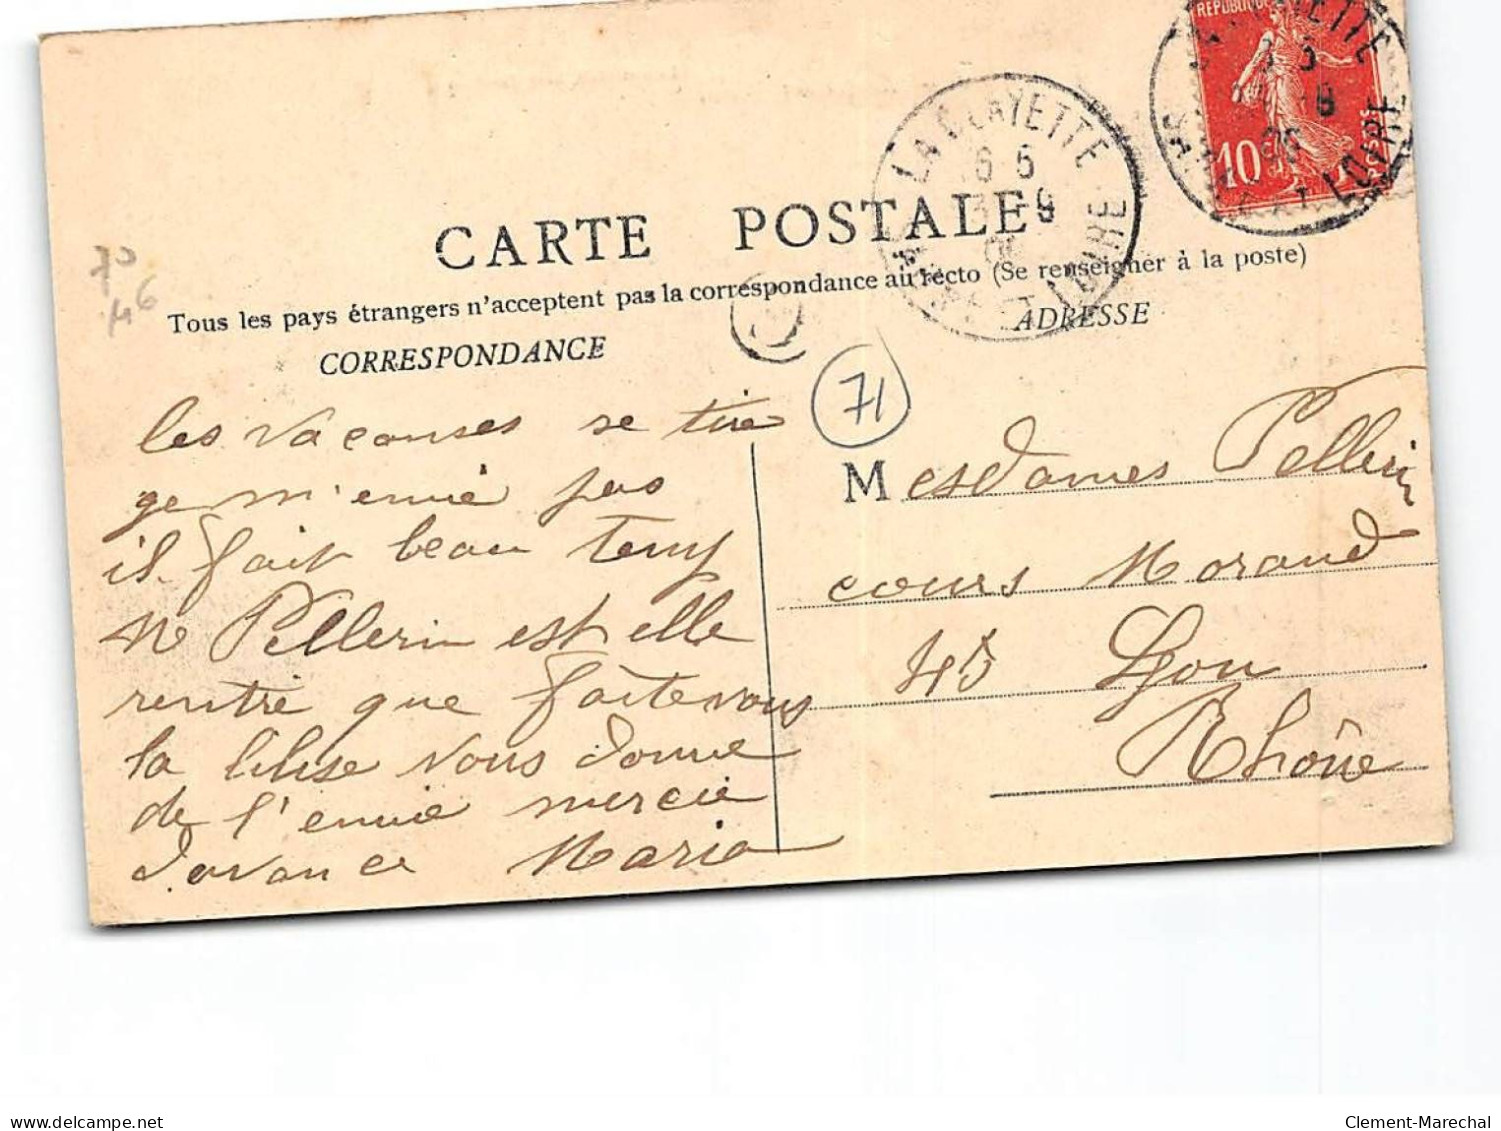 REPUBLIQUE
10c
LA CLAYETTE
LOIRE
CARTE POSTALE
Tous les pays étrangers n'acceptent pas la correspondance au recto (Se renseigner à la poste)
CORRESPONDANCE
ADRESSE
70
46
71
les vacanses se tire
ge m'enuie pas
il fait beau temp
Me Pellerin est elle
rentré que faite vous
la vous donne
de l'envie mercie
d'avance Maria
Mesdames Pellerin
cours Morand
45 Lyon
Rhône
delcampe.net
Clement-Marechal